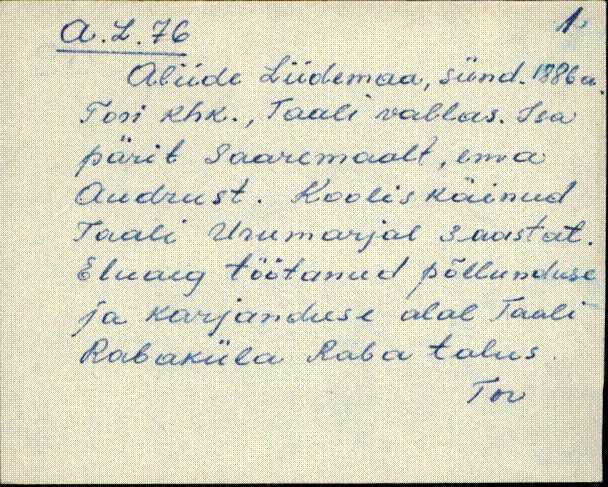 1.
A.L. 76
Aliide Liidemaa, sünd. 1886 a.
Tori khk., Taali vallas. Isa
pärit Saaremaalt, ema
Audrust. Koolis käinud
Taali Urumarjal 3 aastat.
Eluaeg töötanud põllunduse
ja karjanduse alal Taali
Rabaküla Raba talus.
Tor